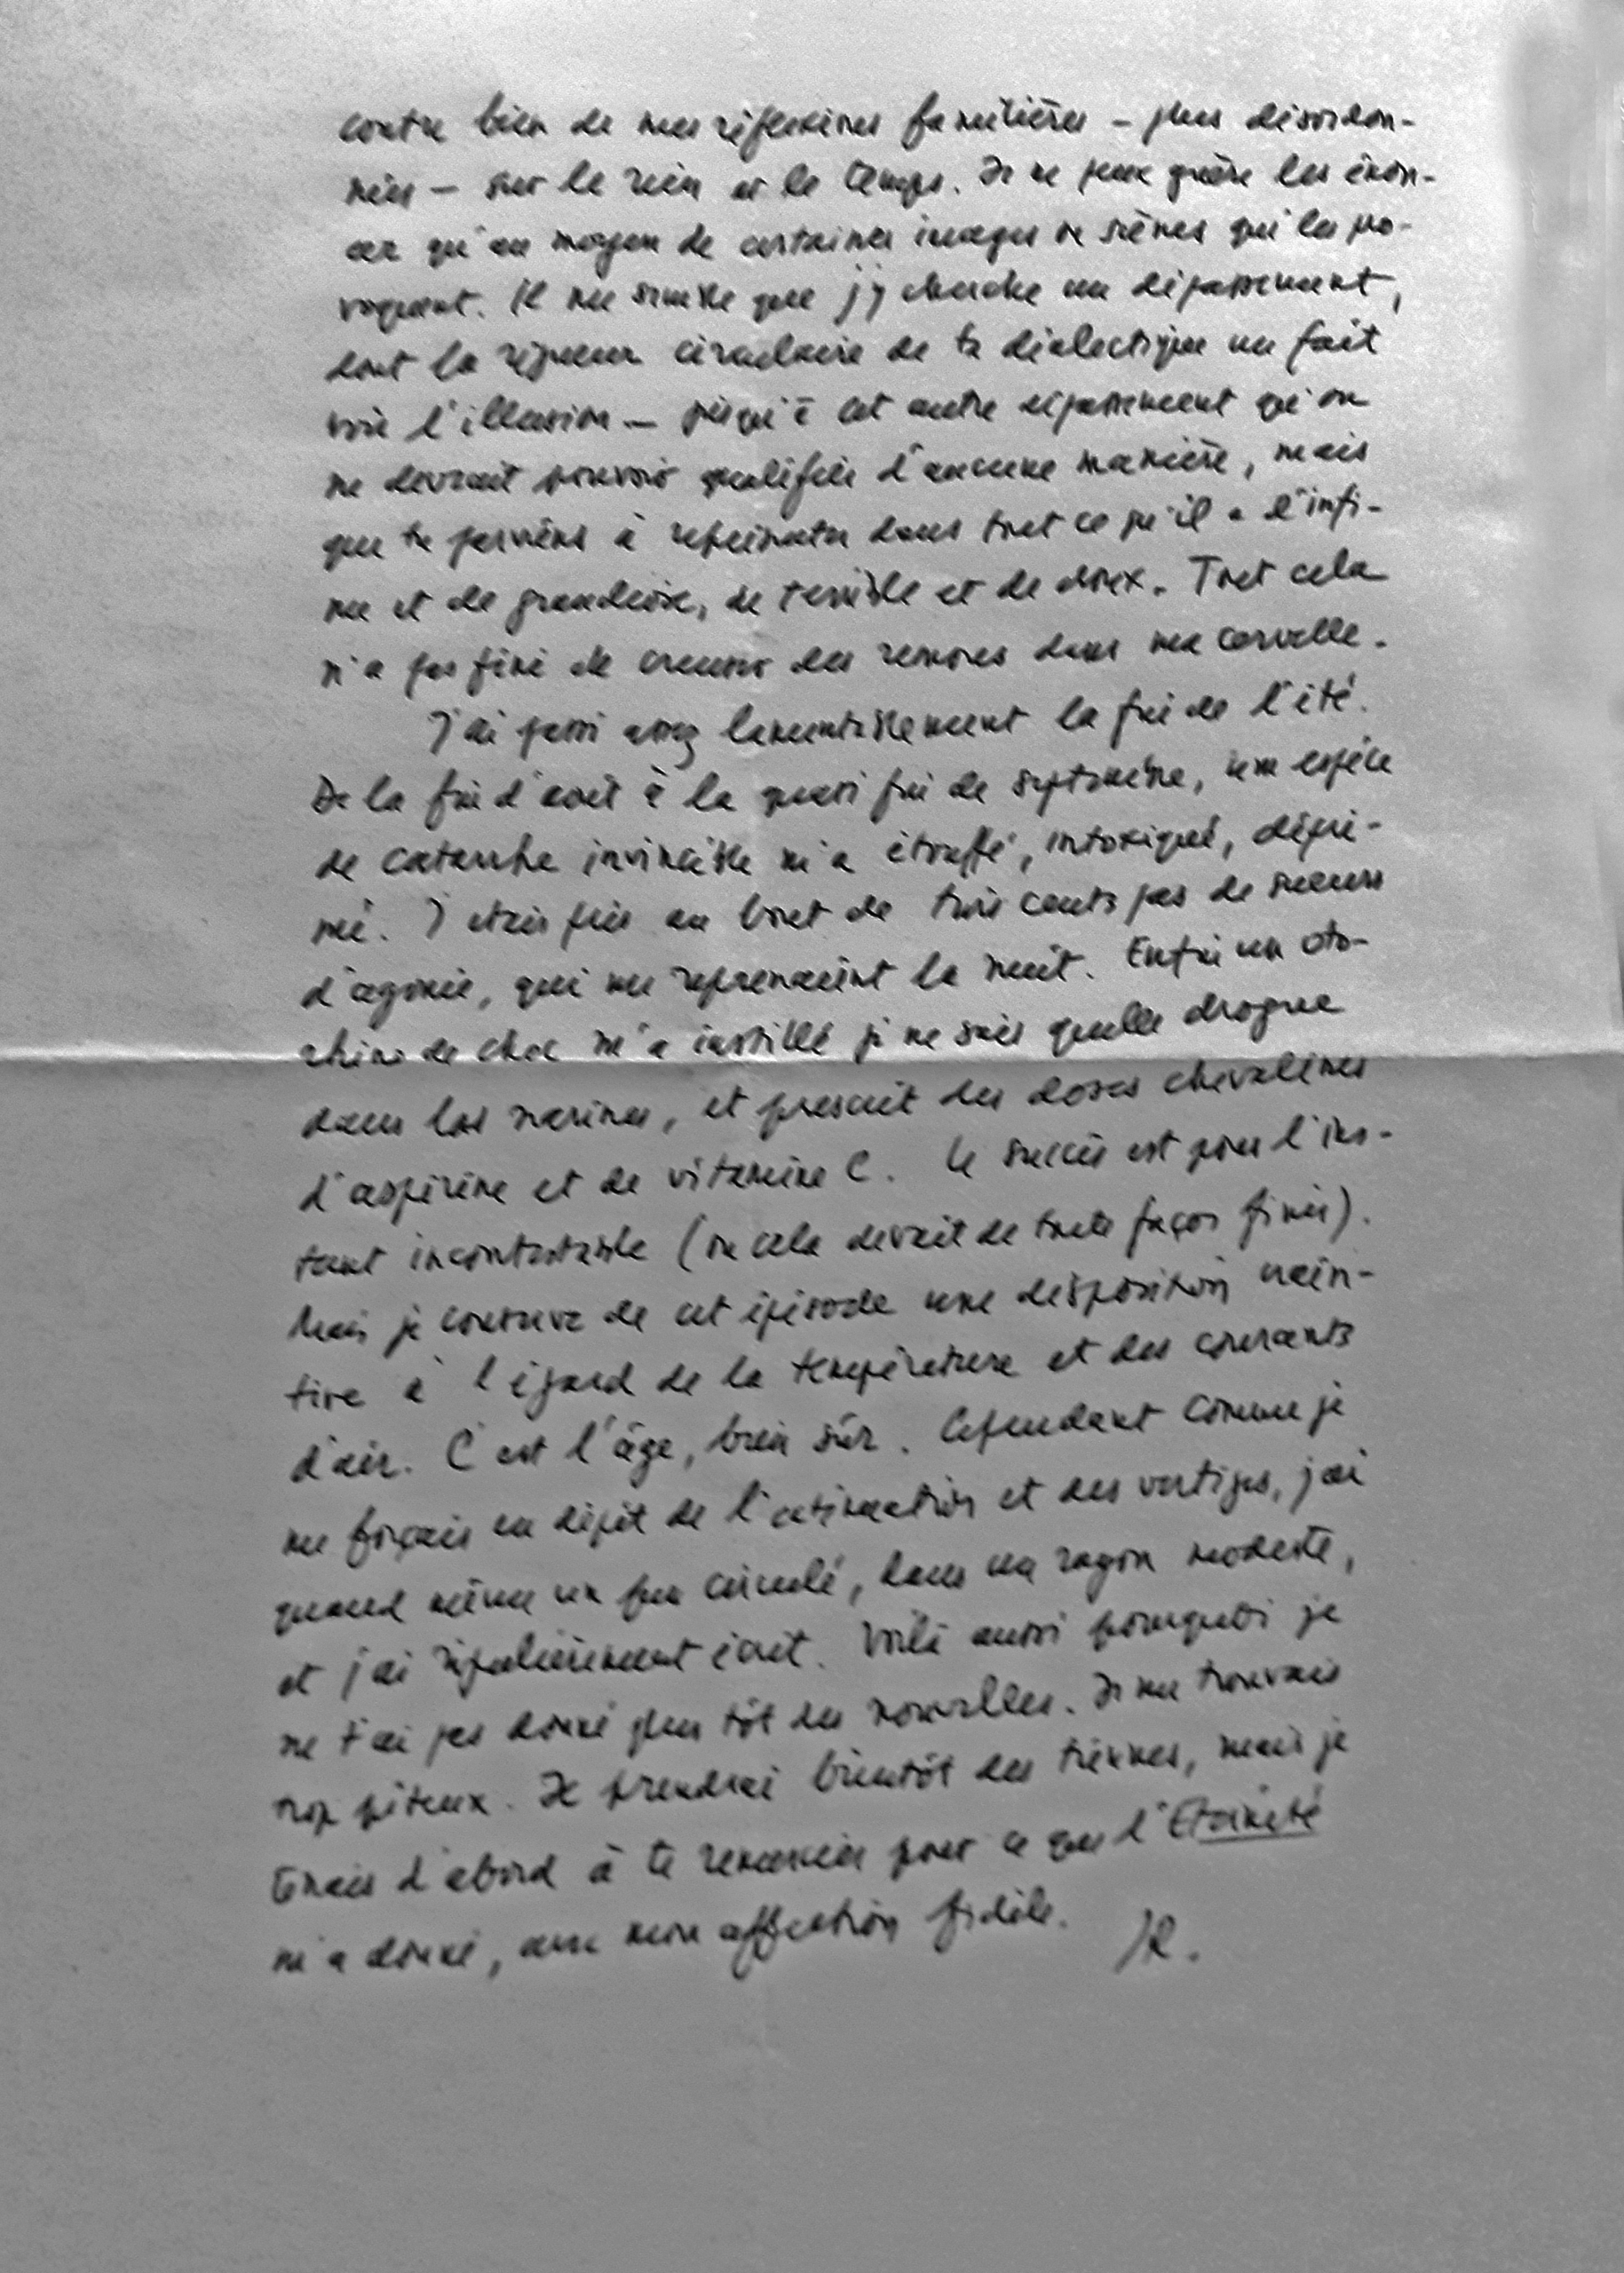 contre bien de mes réflexions familières – plus désordon-
nées – sur le rien et le temps. Je ne peux guère les énon-
cer qu'au moyen de certaines images ou scènes qui les pro-
voquent. Il me semble que j'y cherche un dépassement,
dont la rigueur circulaire de ta dialectique me fait
voir l'illusion – jusqu'à cet autre dépassement qu'on
ne devrait pouvoir qualifier d'aucune manière, mais
que tu parviens à représenter dans tout ce qu'il a d'infi-
me et de grandiose, de terrible et de doux. Tout cela
n'a pas fini de creuser des remous dans ma cervelle.
J'ai passé assez lamentablement la fin de l'été.
De la fin d'août à la quasi fin de septembre, une espèce
de catarrhe invincible m'a étouffé, intoxiqué, dépri-
mé. J'étais pris au bout de trois cents pas de sueurs
d'agonie, qui me reprenaient la nuit. Enfin un oto-
rhino de choc m'a instillé je ne sais quelle drogue
dans les narines, et prescrit des doses chevalines
d'aspirine et de vitamine C. Le succès est pour l'ins-
tant incontestable (ou cela devait de toute façon finir).
Mais je conserve de cet épisode une disposition crain-
tive à l'égard de la température et des courants
d'air. C'est l'âge, bien sûr. Cependant comme je
me forçais en dépit de l'obstination et des vertiges, j'ai
quand même un peu circulé, dans un rayon modeste,
et j'ai régulièrement écrit. Voilà aussi pourquoi je
ne t'ai pas donné plus tôt des nouvelles. Je me trouvais
trop piteux. Je prendrai bientôt des tiennes, mais je
tenais d'abord à te remercier pour ce que l'Etoineté
m'a donné, avec mon affection fidèle. JR.